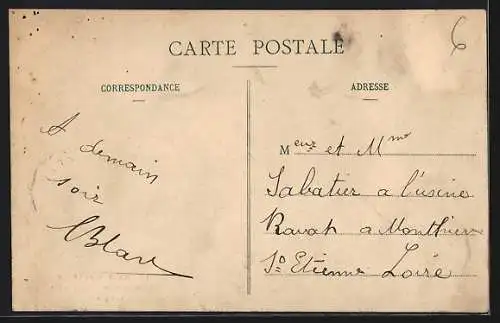 CARTE POSTALE
6
CORRESPONDANCE
A demain
soir
ADRESSE
Meur et Mme
Sabatier a l'usine
Ravat a Monthieu
St Etienne Loire